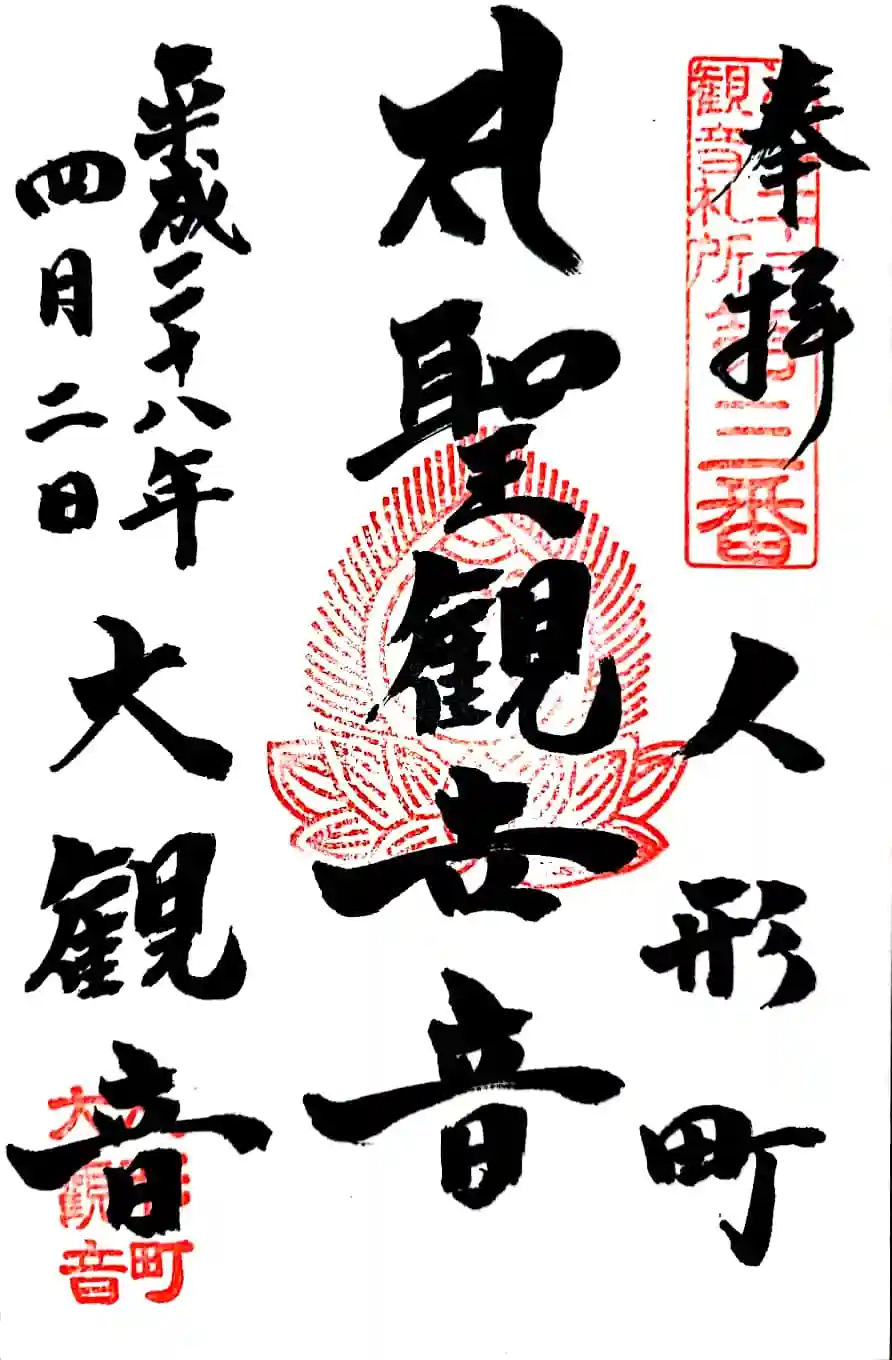 奉拝
人形町
聖観世音
平成二十八年
四月二日
大観音
観音札所第三番
人形町
大観音